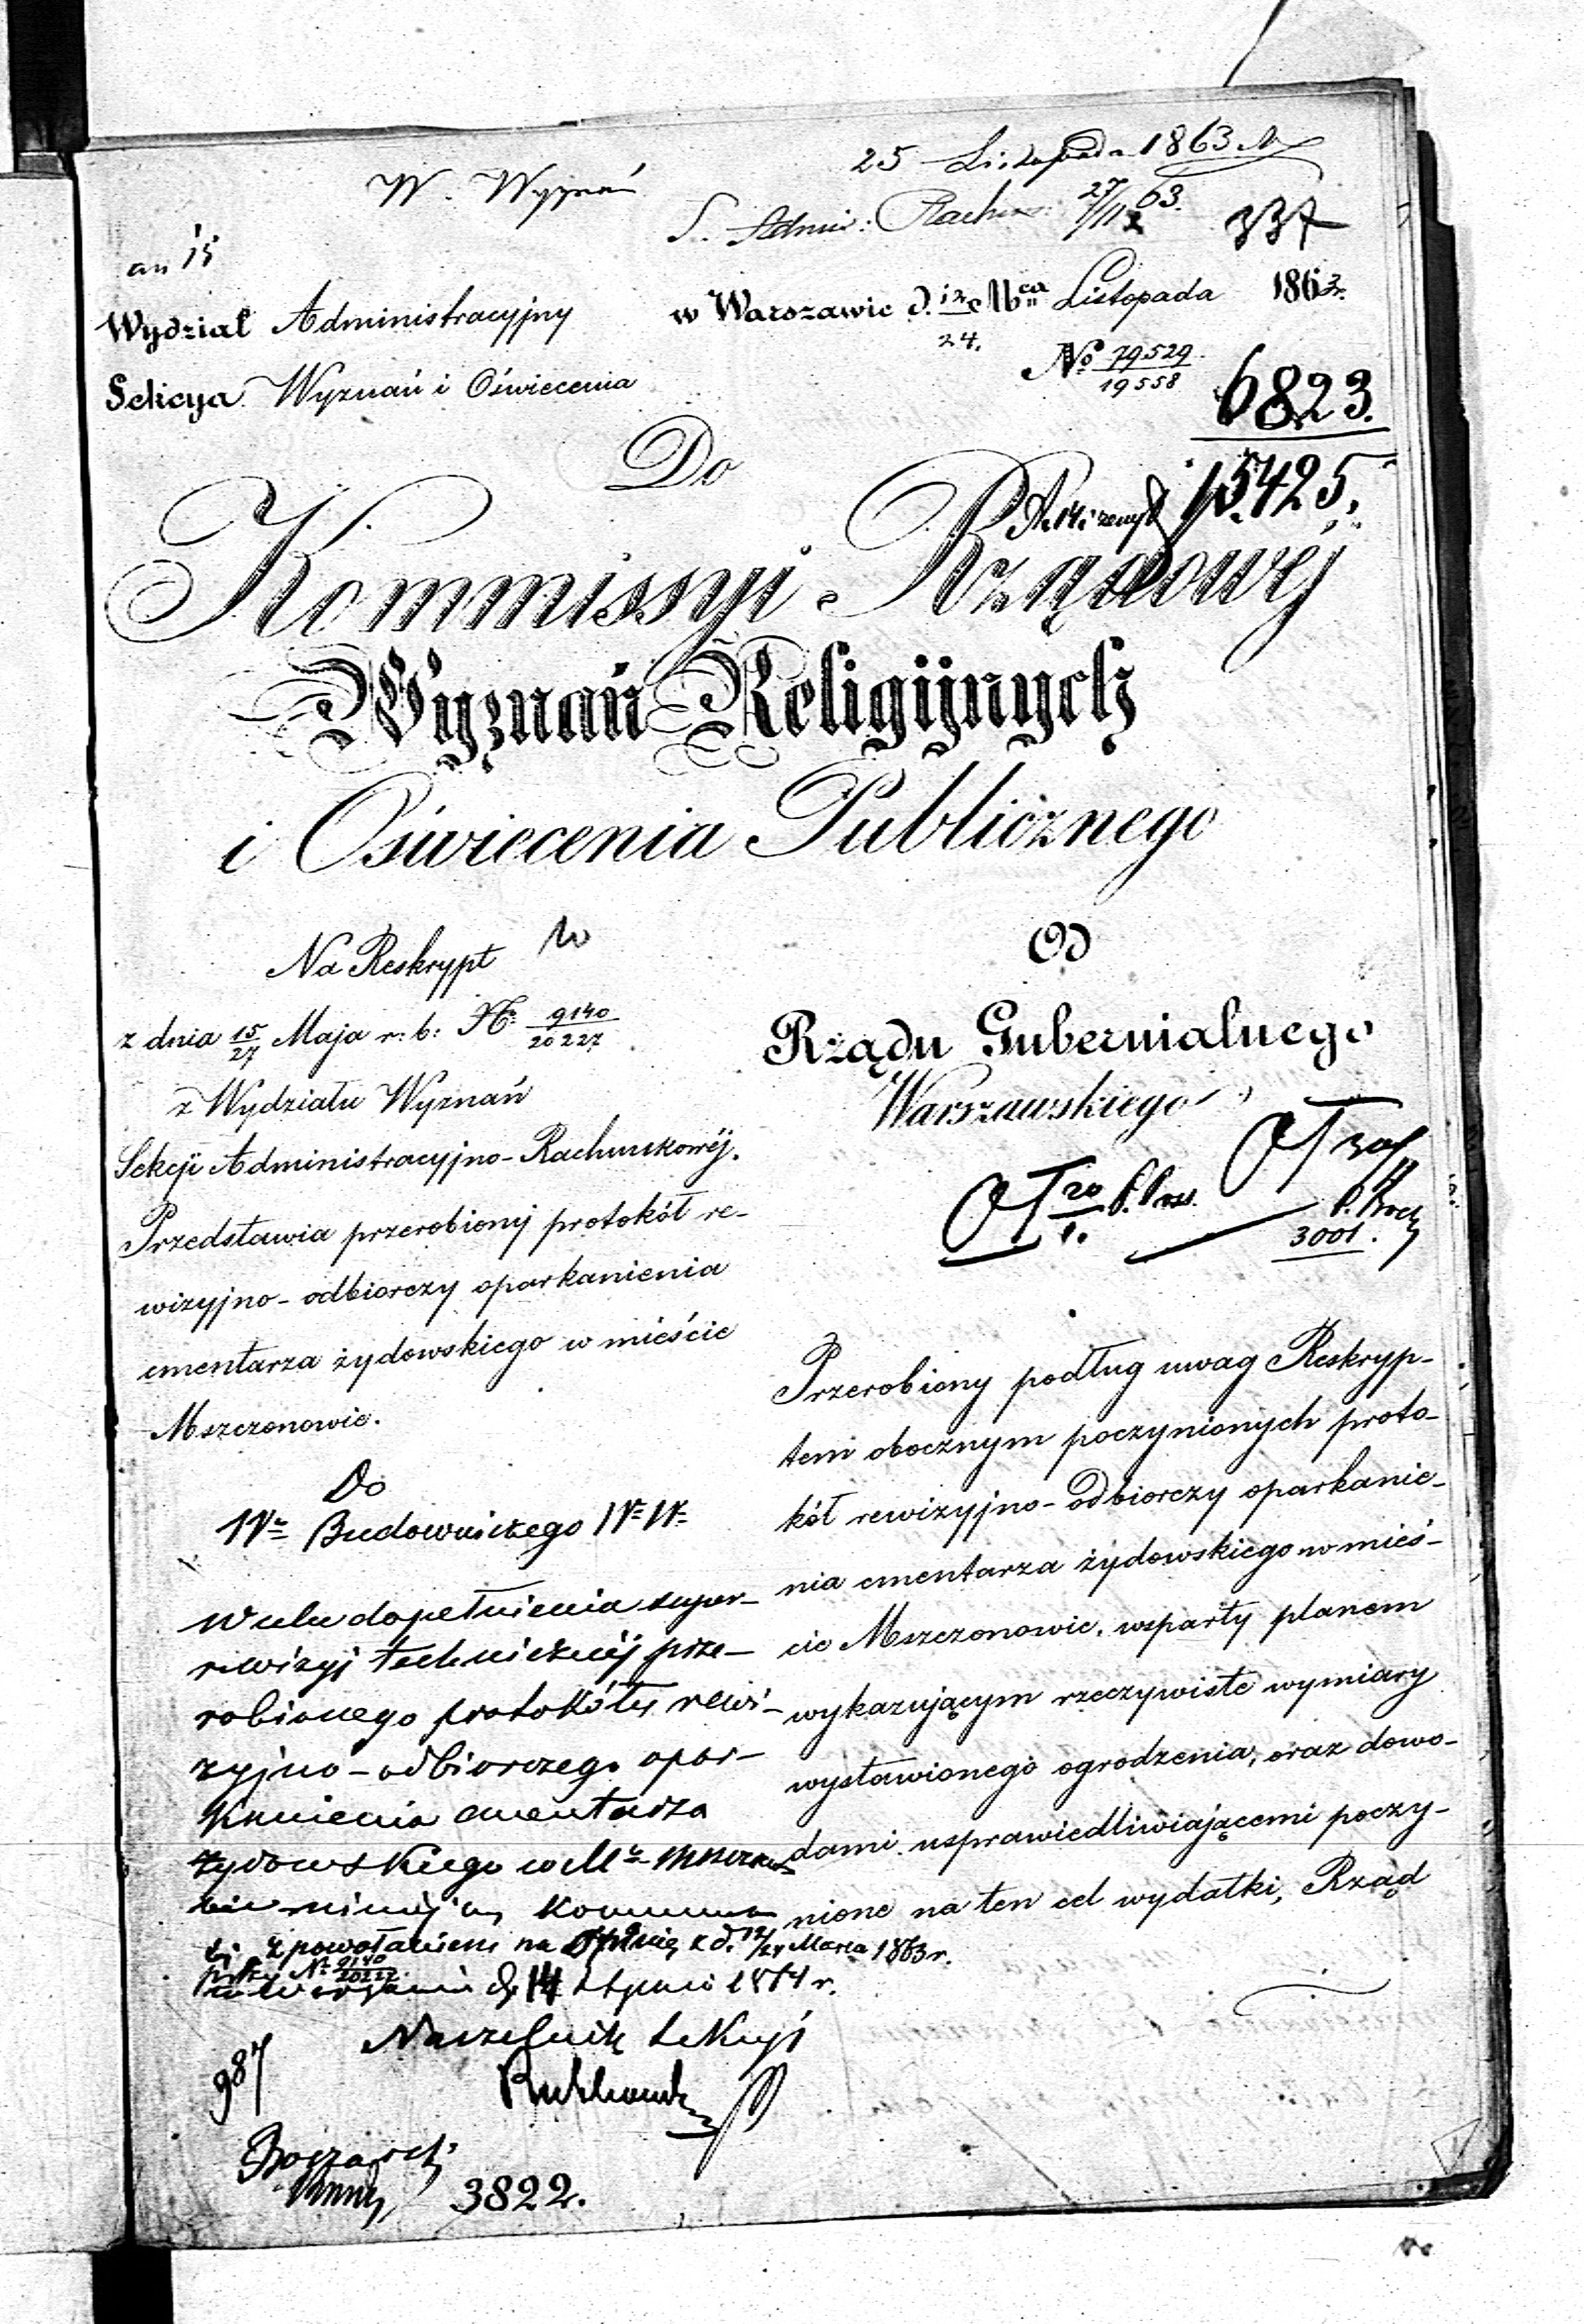 25 Listopada 1863
W. Wyznań
S. Admin: Rachun: 27/11 63.
337
an 15
Wydział Administracyjny
w Warszawie d. 12/24. Mca Listopada 1863r.
No 79529/19558
Sekcya Wyznań i Oświecenia
6823.
15425.
Do
Kommissyi Rządowéj
Wyznań Religijnych
i Oświecenia Publicznego
Na Reskrypt
z dnia 15/27 Maja r. b: No 9140/20227
z Wydziału Wyznań
Sekcji Administracyjno-Rachunkowéj.
Przedstawia przerobiony protokół re-
wizyjno-odbiorczy oparkanienia
cmentarza żydowskiego w mieście
Mszczonowie.
Od
Rządu Gubernialnego
Warszawskiego
20
3001.
Przerobiony podług uwag Reskryp-
tem obocznym poczynionych proto-
kół rewizyjno-odbiorczy oparkanie-
nia cmentarza żydowskiego w mieś-
cie Mszczonowie, wsparty planem
wykazującym rzeczywiste wymiary
wystawionego ogrodzenia, oraz dowo-
dami usprawiedliwiającemi poczy-
nione na ten cel wydatki, Rząd
Do
Budowniczego
W celu dopełnienia super-
rewizyj technicznéj prze-
robionego protokółu rewi-
zyjno-odbiorczego opar-
kanienia cmentarza
żydowskiego w Mszczono-
wie
z powołaniem na opinię z d. 12/24 Marca 1863r.
przy No 9140/20227.
w Warszawie d. 14 Stycznia 1864 r.
Naczelnik Sekcyi
987
3822.